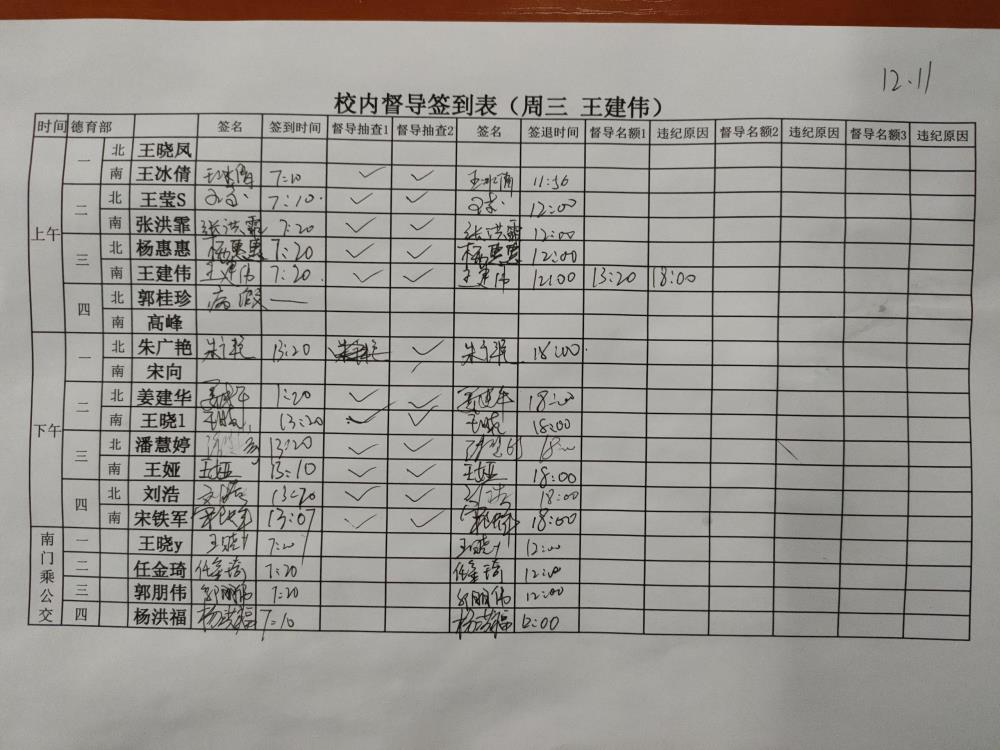 12.11
校内督导签到表（周三 王建伟）
时间 德育部 签名 签到时间 督导抽查1 督导抽查2 签名 签退时间 督导名额1 违纪原因 督导名额2 违纪原因 督导名额3 违纪原因
上午 一 北 王晓凤
南 王冰倩 王冰倩 7:10 ✓ ✓ 王冰倩 11:56
二 北 王莹S 7:10 ✓ ✓ 12:00
南 张洪霏 张洪霏 7:20 ✓ ✓ 张洪霏 12:00
三 北 杨惠惠 杨惠惠 7:20 ✓ ✓ 杨惠惠 12:00
南 王建伟 王建伟 7:20 ✓ ✓ 王建伟 12:00 13:20 18:00
四 北 郭桂珍 病假 —
南 高峰
下午 一 北 朱广艳 朱广艳 13:20 ✓ 朱广艳 18:00
南 宋向
二 北 姜建华 姜建华 1:20 ✓ ✓ 姜建华 18:00
南 王晓1 王晓1 13:20 ✓ ✓ 王晓 18:00
三 北 潘慧婷 13:20 ✓ ✓ 18:00
南 王娅 王娅 13:10 ✓ ✓ 王娅 18:00
四 北 刘浩 刘浩 13:20 ✓ ✓ 刘浩 18:00
南 宋铁军 宋铁军 13:07 ✓ ✓ 宋铁军 18:00
南门乘公交 一 王晓y 王晓y 7:20 王晓y 12:00
二 任金琦 任金琦 7:20 任金琦 12:00
三 郭朋伟 郭朋伟 7:20 郭朋伟 12:00
四 杨洪福 杨洪福 7:10 杨洪福 12:00